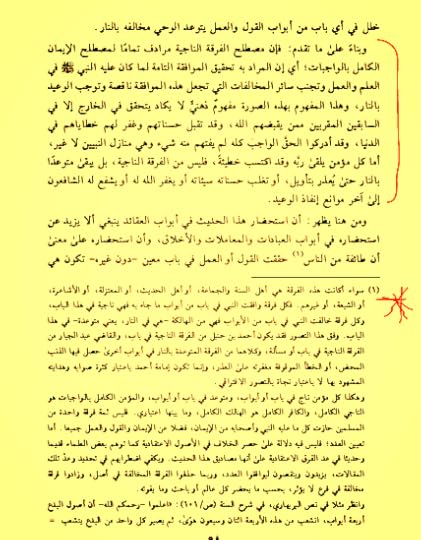 خلل في أي باب من أبواب القول والعمل يتوعد الوحي مخالفه بالنار.
وبناءً علىٰ ما تقدم: فإن مصطلح الفرقة الناجية مرادف تمامًا لمصطلح الإيمان
الكامل بالواجبات؛ أي إن المراد به تحقيق الموافقة التامة لما كان عليه النبي ﷺ في
العلم والعمل وتجنب سائر المخالفات التي تجعل هذه الموافقة ناقصة وتوجب الوعيد
بالنار، وهذا المفهوم بهذه الصورة مفهومٌ ذهنيٌّ لا يكاد يتحقق في الخارج إلا في
السابقين المقربين ممن يقبضهم الله، وقد تقبل حسناتهم وغفر لهم خطاياهم في
الدنيا، وقد أدركوا الحقَّ الواجب كله لم يفتهم منه شيء وهي منازل النبيين لا غير،
أما كل مؤمن يلقىٰ ربَّه وقد اكتسب خطيئةً، فليس من الفرقة الناجية، بل يبقىٰ متوعدًا
بالنار حتىٰ يُعذر بتأويل، أو تغلب حسناته سيئاته أو يغفر الله له أو يشفع له الشافعون
إلىٰ آخر موانع إنفاذ الوعيد.
ومن هنا يظهر: أن استحضار هذا الحديث في أبواب العقائد ينبغي ألا يزيد عن
استحضاره في أبواب العبادات والمعاملات والأخلاق، وأن استحضاره علىٰ معنىٰ
أن طائفة من الناس(١) حققت القول أو العمل في باب معين -دون غيره- تكون هي
(١) سواء أكانت هذه الفرقة هي أهل السنة والجماعة، أو أهل الحديث، أو المعتزلة، أو الأشاعرة،
أو الشيعة، أو غيرهم. فكل فرقة وافقت النبي في باب من الأبواب ما جاء به فهي ناجية في هذا الباب،
وكل فرقة خالفت النبي في باب من الأبواب فهي من الهالكة -أي هي في النار، يعني متوعدة- في هذا
الباب. وفق هذا التصور فقد يكون أحمد بن حنبل من الفرقة الناجية في باب، والقاضي عبد الجبار من
الفرقة الناجية في باب أو مسألة، وكلاهما من الفرقة المتوعدة بالنار في أبواب أخرىٰ حصل فيها الذنب
المحض، أو الخطأ الموقوفة مغفرته علىٰ العذر، وإنما تكون إمامة أحمد باعتبار كثرة صوابه وهدايته
المشهود بها لا باعتبار نجاة بالتصور الافتراقي.
وهكذا كل مؤمن ناج في باب أو أبواب، ومتوعد في باب أو أبواب، والمؤمن الكامل بالواجبات هو
الناجي الكامل، والكافر الكامل هو الهالك الكامل، وما بينها اعتباري. فليس ثمة فرقة واحدة من
المسلمين حازت كل ما عليه النبي وأصحابه من الإيمان، فضلا عن الإيمان والقول والعمل جميعا. أما
تعيين العدد؛ فليس فيه دلالة علىٰ حصر الخلاف في الأصول الاعتقادية كما توهم بعض العلماء قديما
وحديثا في عد الفرق الاعتقادية علىٰ أنها مصاديق هذا الحديث. ويكفي اضطرابهم في تحديد وعدّ تلك
المقالات، يزيدون وينقصون ليوافقوا العدد، وربما حذفوا الفرقة المخالفة في أصل، وزادوا فرقة
مخالفة في فرع لا يؤثر، بحسب ما يحضر كل عالم أو باحث وما يفوته.
وانظر مثلا في نص البربهاري، في شرح السنة (ص/١٠٦): «اعلموا -رحمكم الله- أن أصول البدع
أربعة أبواب، انشعب من هذه الأربعة اثنان وسبعون هوًىٰ، ثم يصير كل واحد من البدع يتشعب =